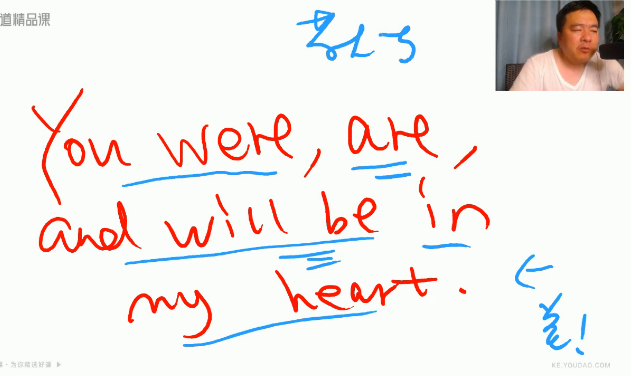 道精品课
You were, are,
and will be in
my heart.
为你精选好课
KE.YOUDAO.COM